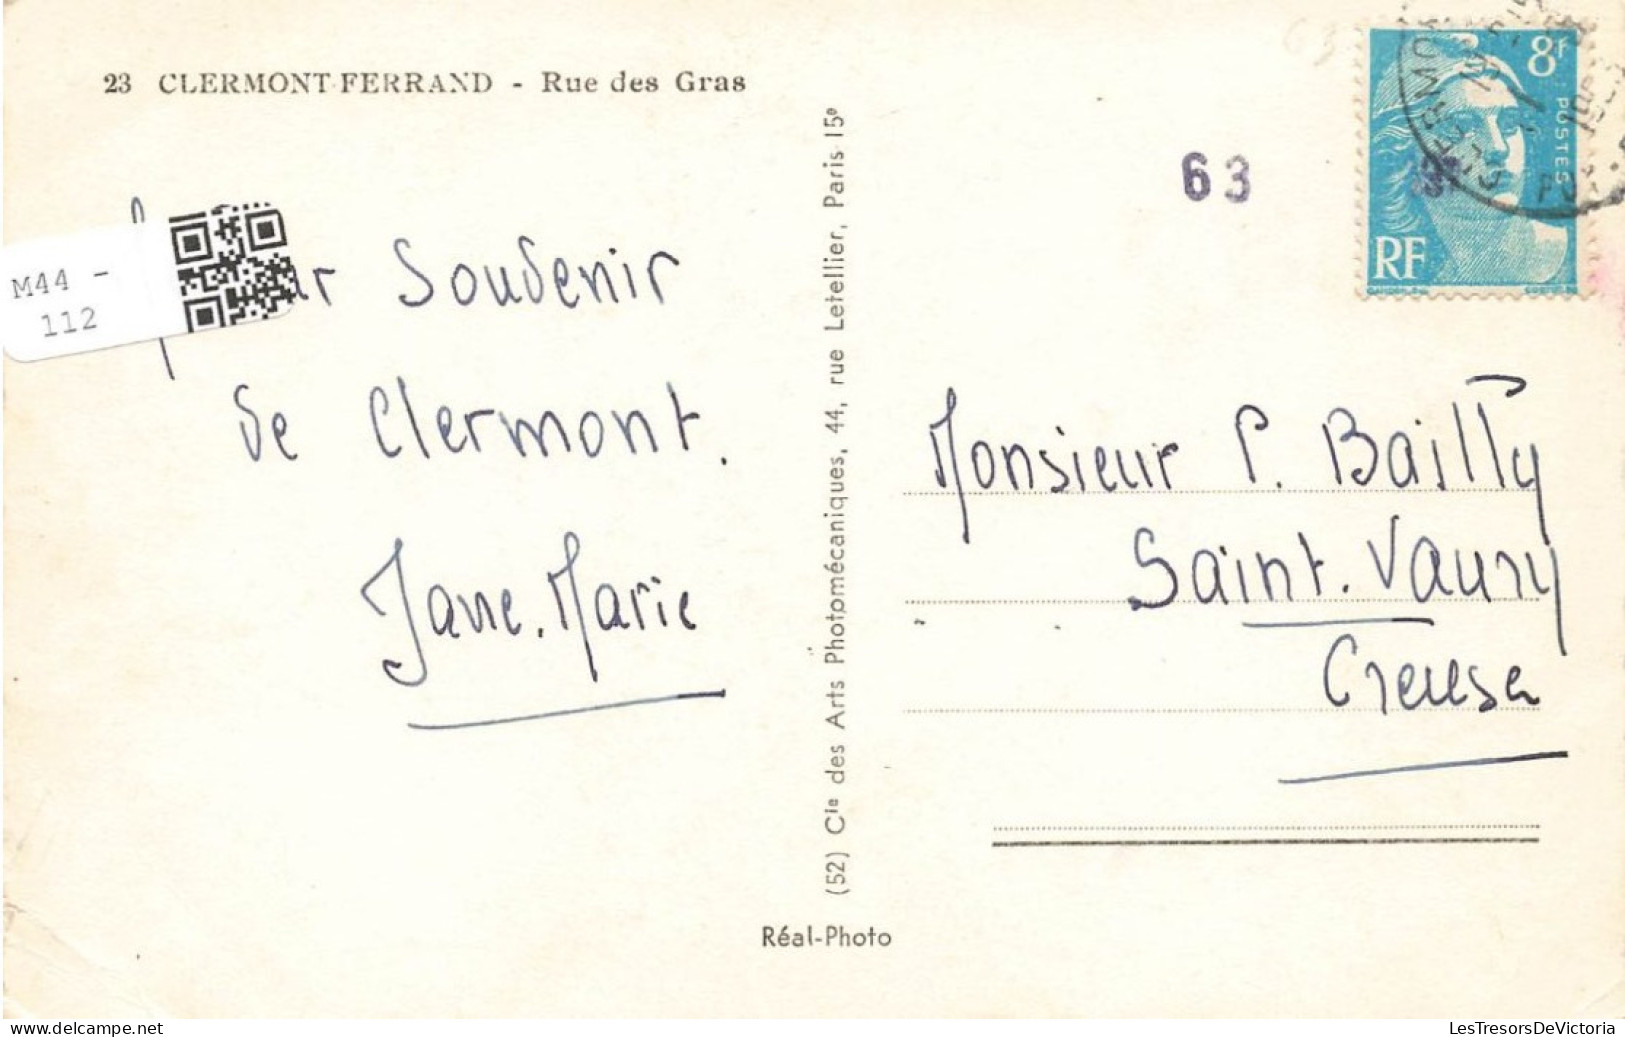 23 CLERMONT-FERRAND - Rue des Gras
M44 -
112
Souvenir
de Clermont.
Jane.Marie
(52) Cie des Arts Photomécaniques, 44, rue Letellier, Paris 15e
Réal-Photo
63
8F
POSTES
RF
63
Monsieur P. Bailly
Saint.Vaury
Creuse
delcampe.net
LesTresorsDeVictoria